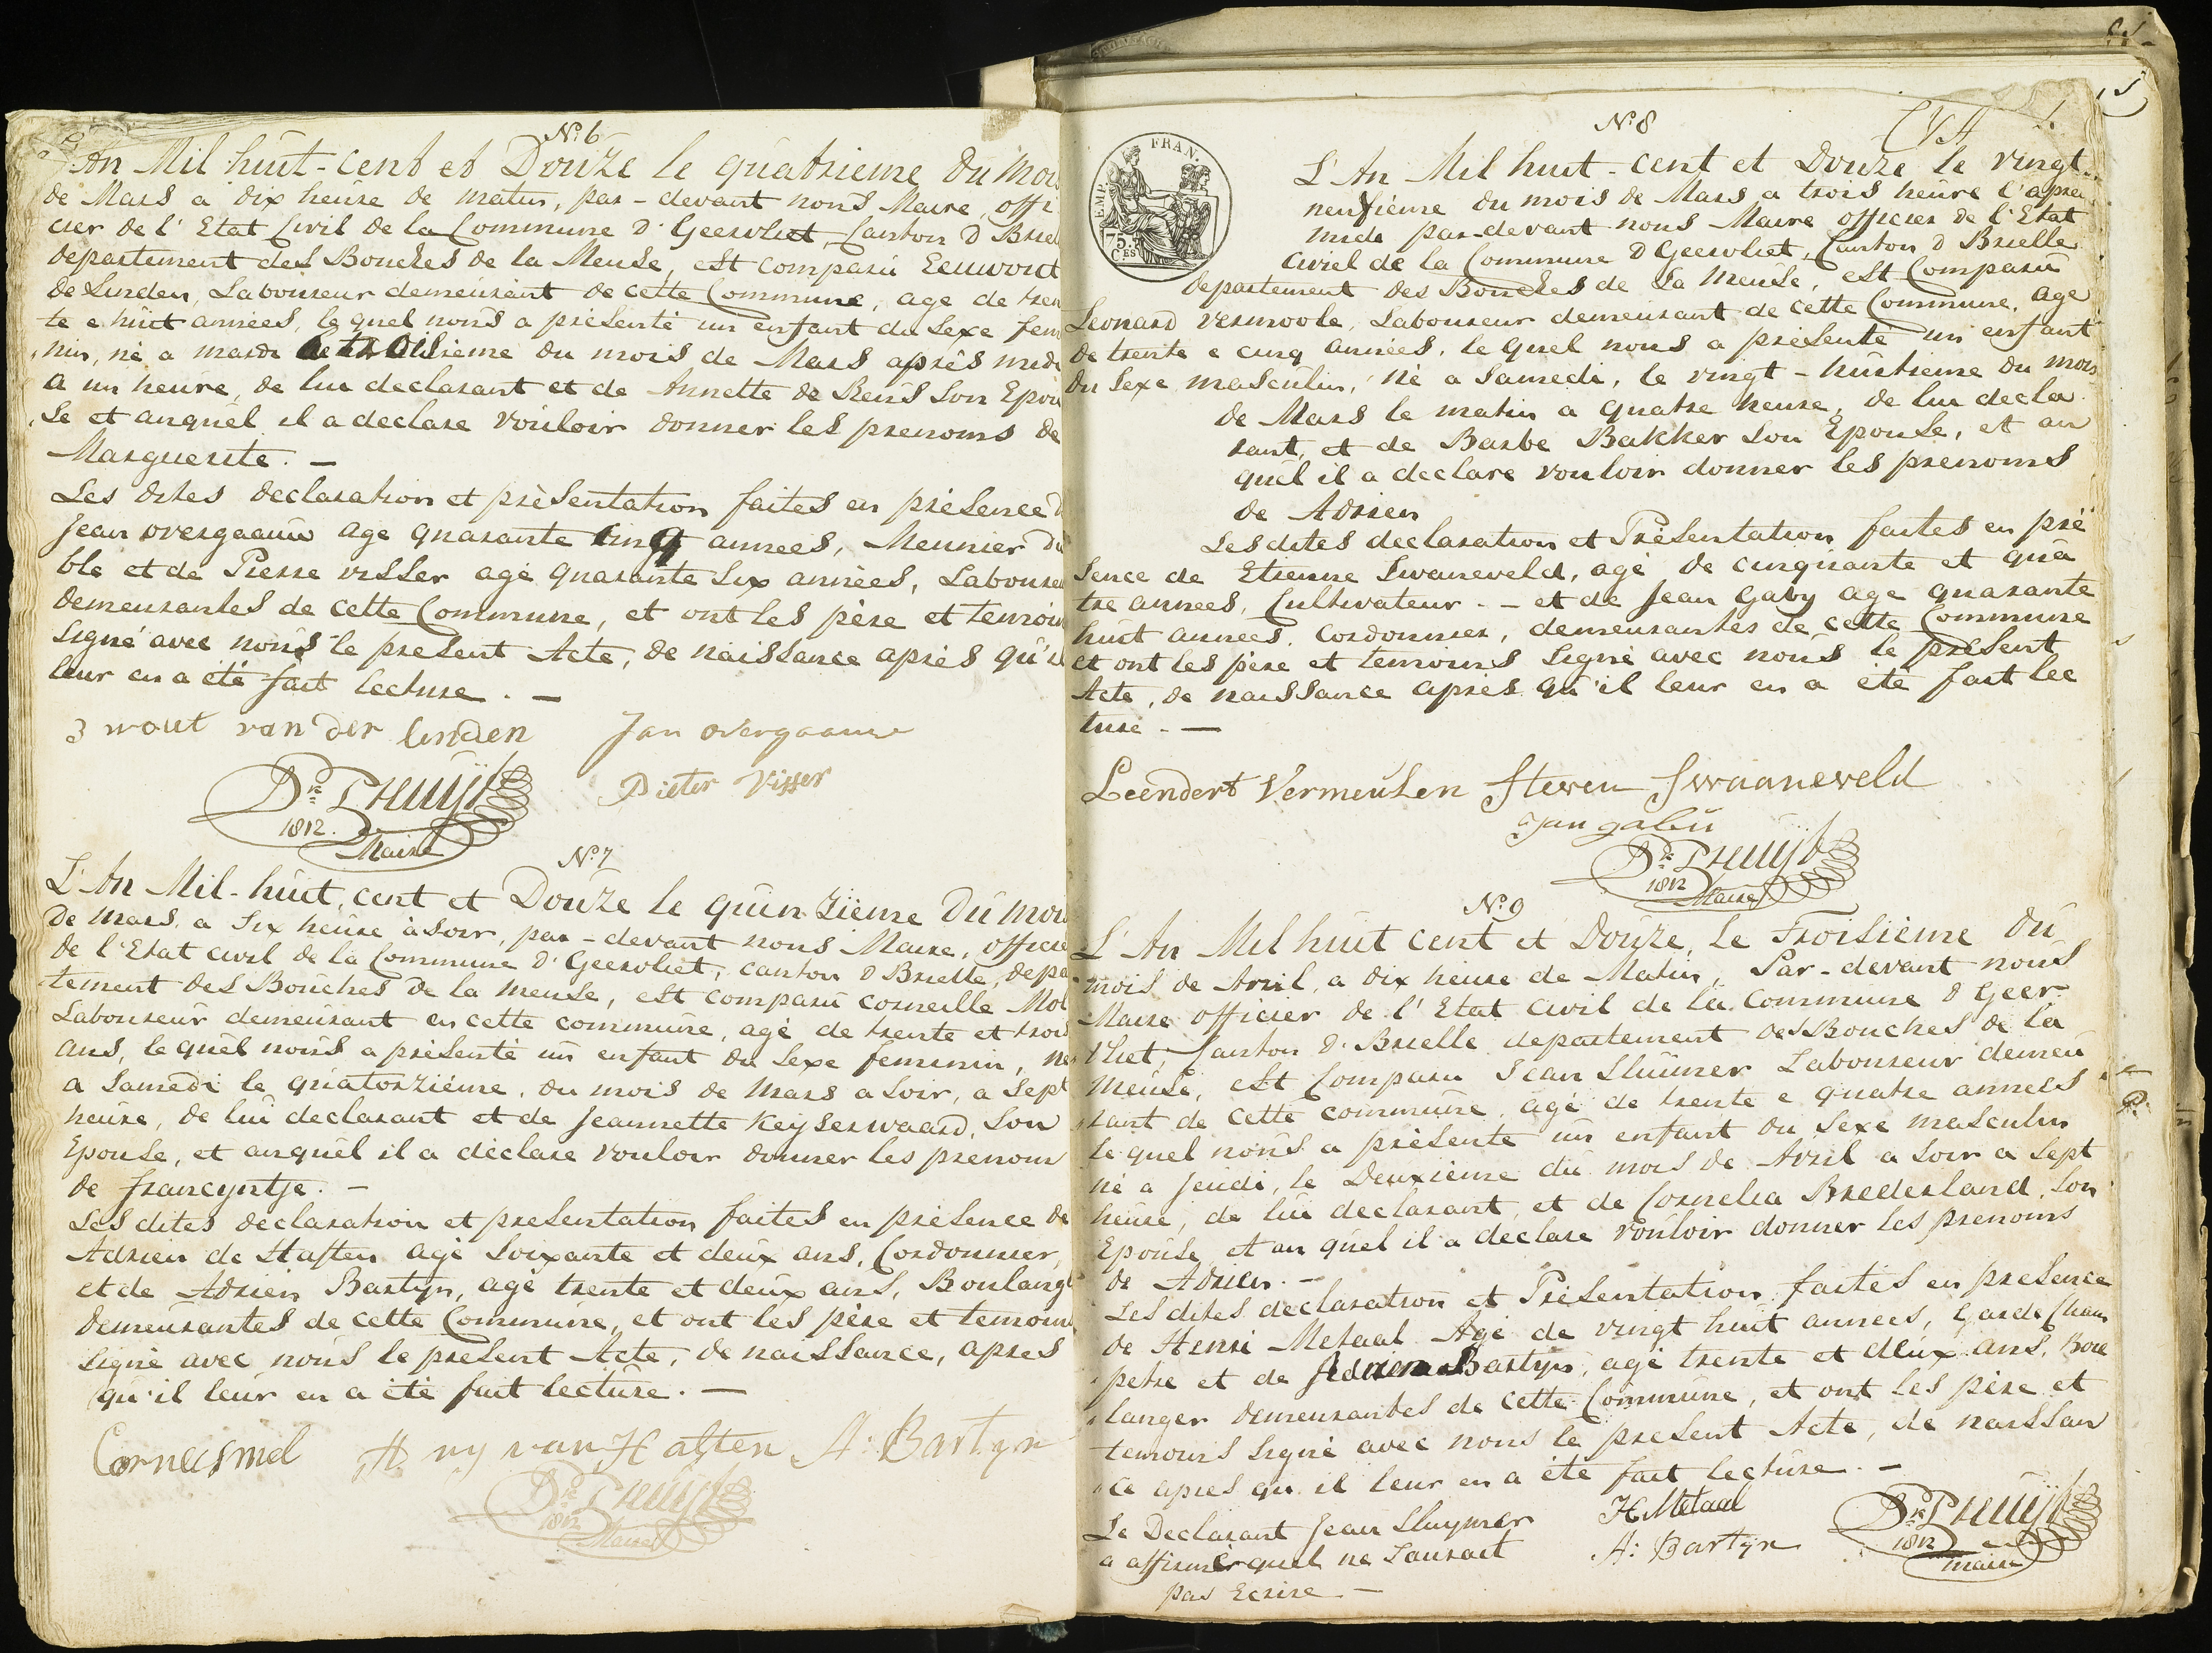 N.º 6
L'An Mil huit-cent et Douze le quatrieme du Mois
de Mars a dix heure de matin, par-devant nous Maire, offi
cier de l'Etat Civil de la Commune d'Geervliet, Canton d Briel
departement des Bouches de la Meuse, est comparu Eeuwout
de Linden, Laboureur demeurant de cette Commune, age de tren
te e huit années, le quel nous a presenté un enfant du Sexe fem
nin, né a mardi le troisieme du mois de Mars aprés midi
a un heure, de lui declarant et de Annette de Reus Son Epou
se et auquel il a declare vouloir donner les prenoms de
Marguerite. —
Les dites declaration et présentation faites en présence d
Jean overgaauw age quarante cinq années, Meunier du
ble et de Pierre visser agé quarante Six années, Laboure
demeurantes de cette Commune, et ont les père et temoin
Signé avec nous le present Acte, de naissance après qu'il
leur en a été fait lecture. —
3 wout van der linden Jan overgaauw
Pieter Visser
Dk Pruijt
1812.
Maire
N.º 7
L'An Mil-huit, cent et Douze le quinzième Du mois
de Mars, a Six heure à Soir, par-devant nous Maire, officie
de l'Etat civil de la Commune d'Geervliet, canton d Brielle, depa
tement des Bouches de la Meuse, est comparu corneille Mol
Laboureur demeurant en cette commune, agé de trente et trois
ans, le quel nous a présenté un enfant du Sexe feminin, né
a Samedi le quatorzième, du mois de Mars a Soir, a Sept
heure, de lui declarant et de Jeannette Keyserwaard, Son
Epouse, et auquel il a déclare vouloir donner les prenom
de francyntje. —
Les dites declaration et presentation faites en présence de
Adrien de Haften agé Soixante et deux ans, Cordonnier,
et de Adrien Bartyn, agé trente et deux ans, Boulang
demeurantes de cette Commune, et ont les père et temoin
Signé avec nous le present Acte, de naissance, apres
qu'il leur en a été fait lecture. —
Cornelis mol A ny van Haften A: Bartyn
Dk Pruijt
1812
Maire
N.º 8
L'An Mil huit-cent et Douze le vingt
neufième du mois de Mars a trois heure l'apre
midi par-devant nous Maire officier de l'Etat
civiel de la Commune d Geervliet, Canton d Brielle
departement des Bouches de la Meuse, est Comparu
Leonard vermoole, Laboureur demeurant de cette Commune, age
de trente e cinq années, le quel nous a présenté un enfant
du Sexe masculin, né a Samedi, le vingt-huitieme du mois
de Mars le matin a quatre heure, de lui decla
rant, et de Barbe Bakker Son Epouse, et au
quel il a declare vouloir donner les prenoms
de Adrien
Les dites declaration et Présentation faites en pré
sence de Etienne Swaneveld, agé de cinquante et qua
tre annees, Cultivateur. — et de Jean Gaby age quarante
huit annees, cordonnier, demeurantes de cette Commune
et ont les père et temoins Signé avec nous le present
Acte, de naissance après qu'il leur en a été fait lec
ture. —
Leendert Vermeulen Steven Swaaneveld
Jan gabii
Dk Pruijt
1812
Maire
N.º 9
L'An Mil huit cent et Douze, Le Troisième du
mois de Avril, a dix heure de Matin, Par-devant nous
Maire officier de l'Etat civil de la Commune d Geer
vliet, Canton d. Brielle departement des Bouches de la
Meuse, est Comparu Jean Sluimer Laboureur demeu
rant de cette commune, agé de trente e quatre annees
le quel nous a présente un enfant du Sexe masculin
né a Jeudi, le Deuxieme du mois de Avril a Soir a Sept
heure, de lui declarant, et de Cornelia Brederland, Son
Epouse, et au quel il a declare vouloir donner les prenoms
de Adrien. —
Les dites declaration et Présentation faites en presence
de Henri Metaal Agé de vingt huit annees, Garde Cham
petre et de Adrien Bartyn, agé trente et deux ans, Bou
langer demeurantes de cette Commune, et ont les père et
temoins Signé avec nous le present Acte, de naissan
ce apres qu'il leur en a été fait lecture. —
Le Declarant Jean Sluymer
a affirmé quel ne Saurait
pas Ecrire —
H Metaal
A: Bartyn
Dk Pruijt
1812
maire
EMP. FRAN.
75.
CES